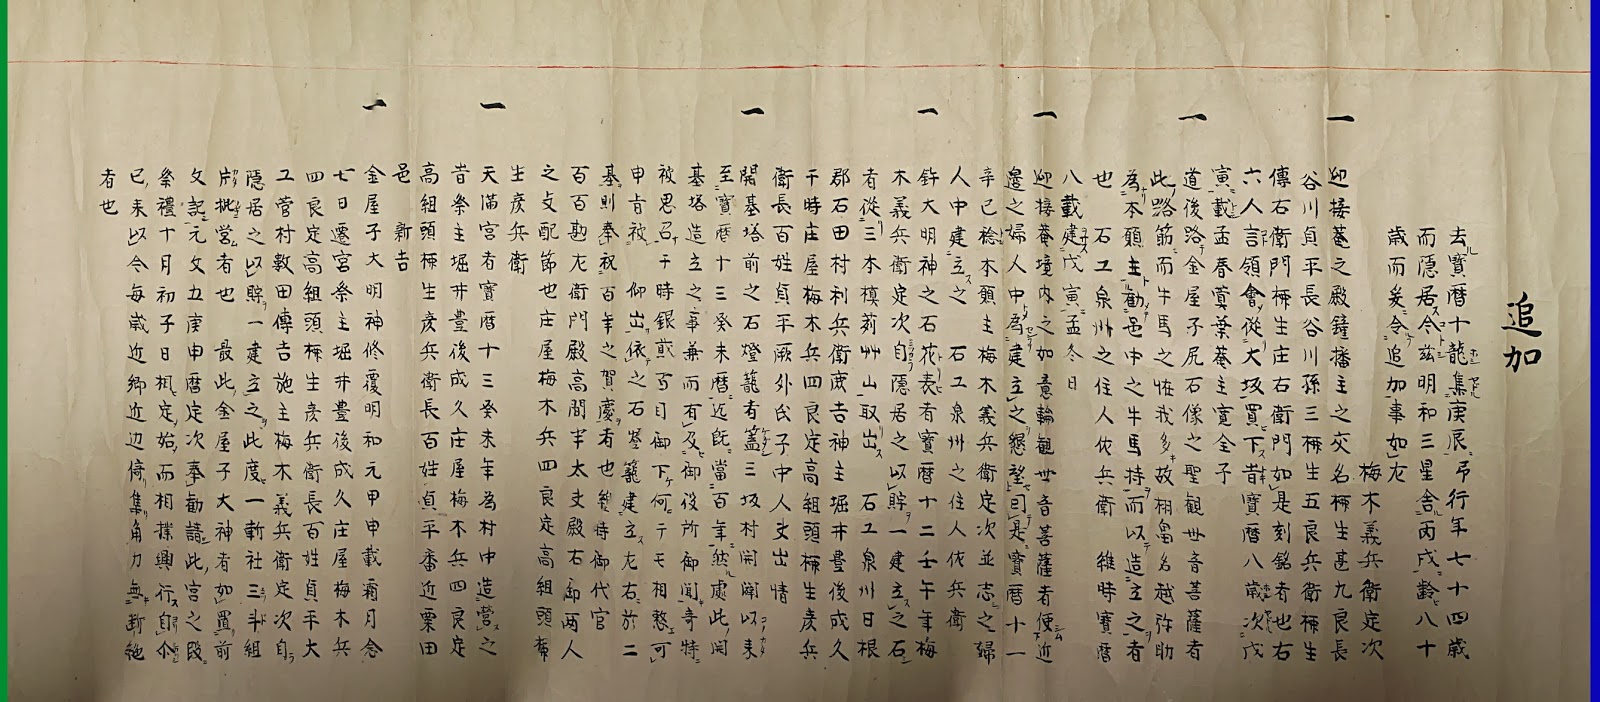 追加
去ル寳暦十龍集庚辰弔行年七十四歳
而隠居ス令玆明和三星舎丙戌齢八十
歳而奚令追加事如左
梅木義兵衛定次
一 迎接菴之殿鐘播主之交名柳生甚九良長
谷川貞平長谷川孫三柳生五良兵衛柳生
傳右衛門柳生庄右衛門如是刻銘者也右
六人言領會従大坂買下昔寳暦八歳次戊
寅載孟春奠葉菴主寛全子
一 道後路金屋子尻石像之聖観世音菩薩者
此路筋而牛馬之恠我多故栩畠名越許助
為本願主勧邑中之牛馬持而以造立之者
也 石工泉州之住人佐兵衛 維時寳暦
八載建戊寅孟冬日
一 迎接菴境内之如意輪観世音菩薩者便近
邊之婦人中為建立之懇望司是寳暦十一
辛巳稔本願主梅木義兵衛定次並志之婦
人中建立之 石工泉州之住人佐兵衛
一 鉾大明神之石花表者寳暦十二壬午年梅
木義兵衛定次自隠居之以貯一建立之石
者従三本槙莉艸山取出 石工泉州日根
郡石田村利兵衛鹿吉神主堀井豊後成久
干時庄屋梅木兵四良定高組頭柳生彦兵
衛長百姓貞平厥外氏子中人丈出情
一 開基塔前之石燈籠者蓋三坂村開闢以来
至寳暦十三癸未暦近既當百年然處此開
基塔造立之事兼而有及御役所御聞奇特
被思召干時銀煎百目御下何ニテモ相愍可
申旨被 仰出依之石燈籠建立左右於二
基則奉祝百年之賀慶者也維時御代官
百百勘左衛門殿高間半太丈殿右御両人
之支配節也庄屋梅木兵四良定高組頭柳
生彦兵衛
一 天満宮者寳暦十三癸未年為村中造営之
昔祭主堀井豊後成久庄屋梅木兵四良定
高組頭柳生彦兵衛長百姓貞平番近栗田
邑 新吉
一 金屋子大明神修覆明和元甲申載霜月念
七日遷宮祭主堀井豊後成久庄屋梅木兵
四良定高組頭柳生彦兵衛長百姓貞平大
工菅村数田傳吉施主梅木義兵衛定次自
隠居之以貯一建立之此度一斬社三斗組
片批営者也 最此金屋子大神者如置前
文記元文五庚申暦定次奉勧請此宮之段
祭禮十月初子日相定始而相撲興行自介
已来以今毎歳近郷近辺倚集角力無断絶
者也